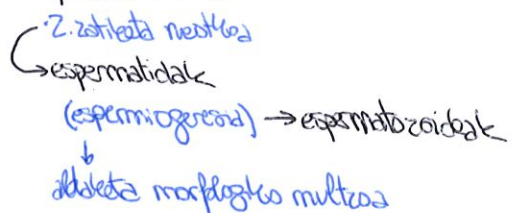 ·2. zatiketa meiotikoa
→espermatidak
(espermiogenesia) →espermatozoideak
↓
aldaketa morfologiko multzoa